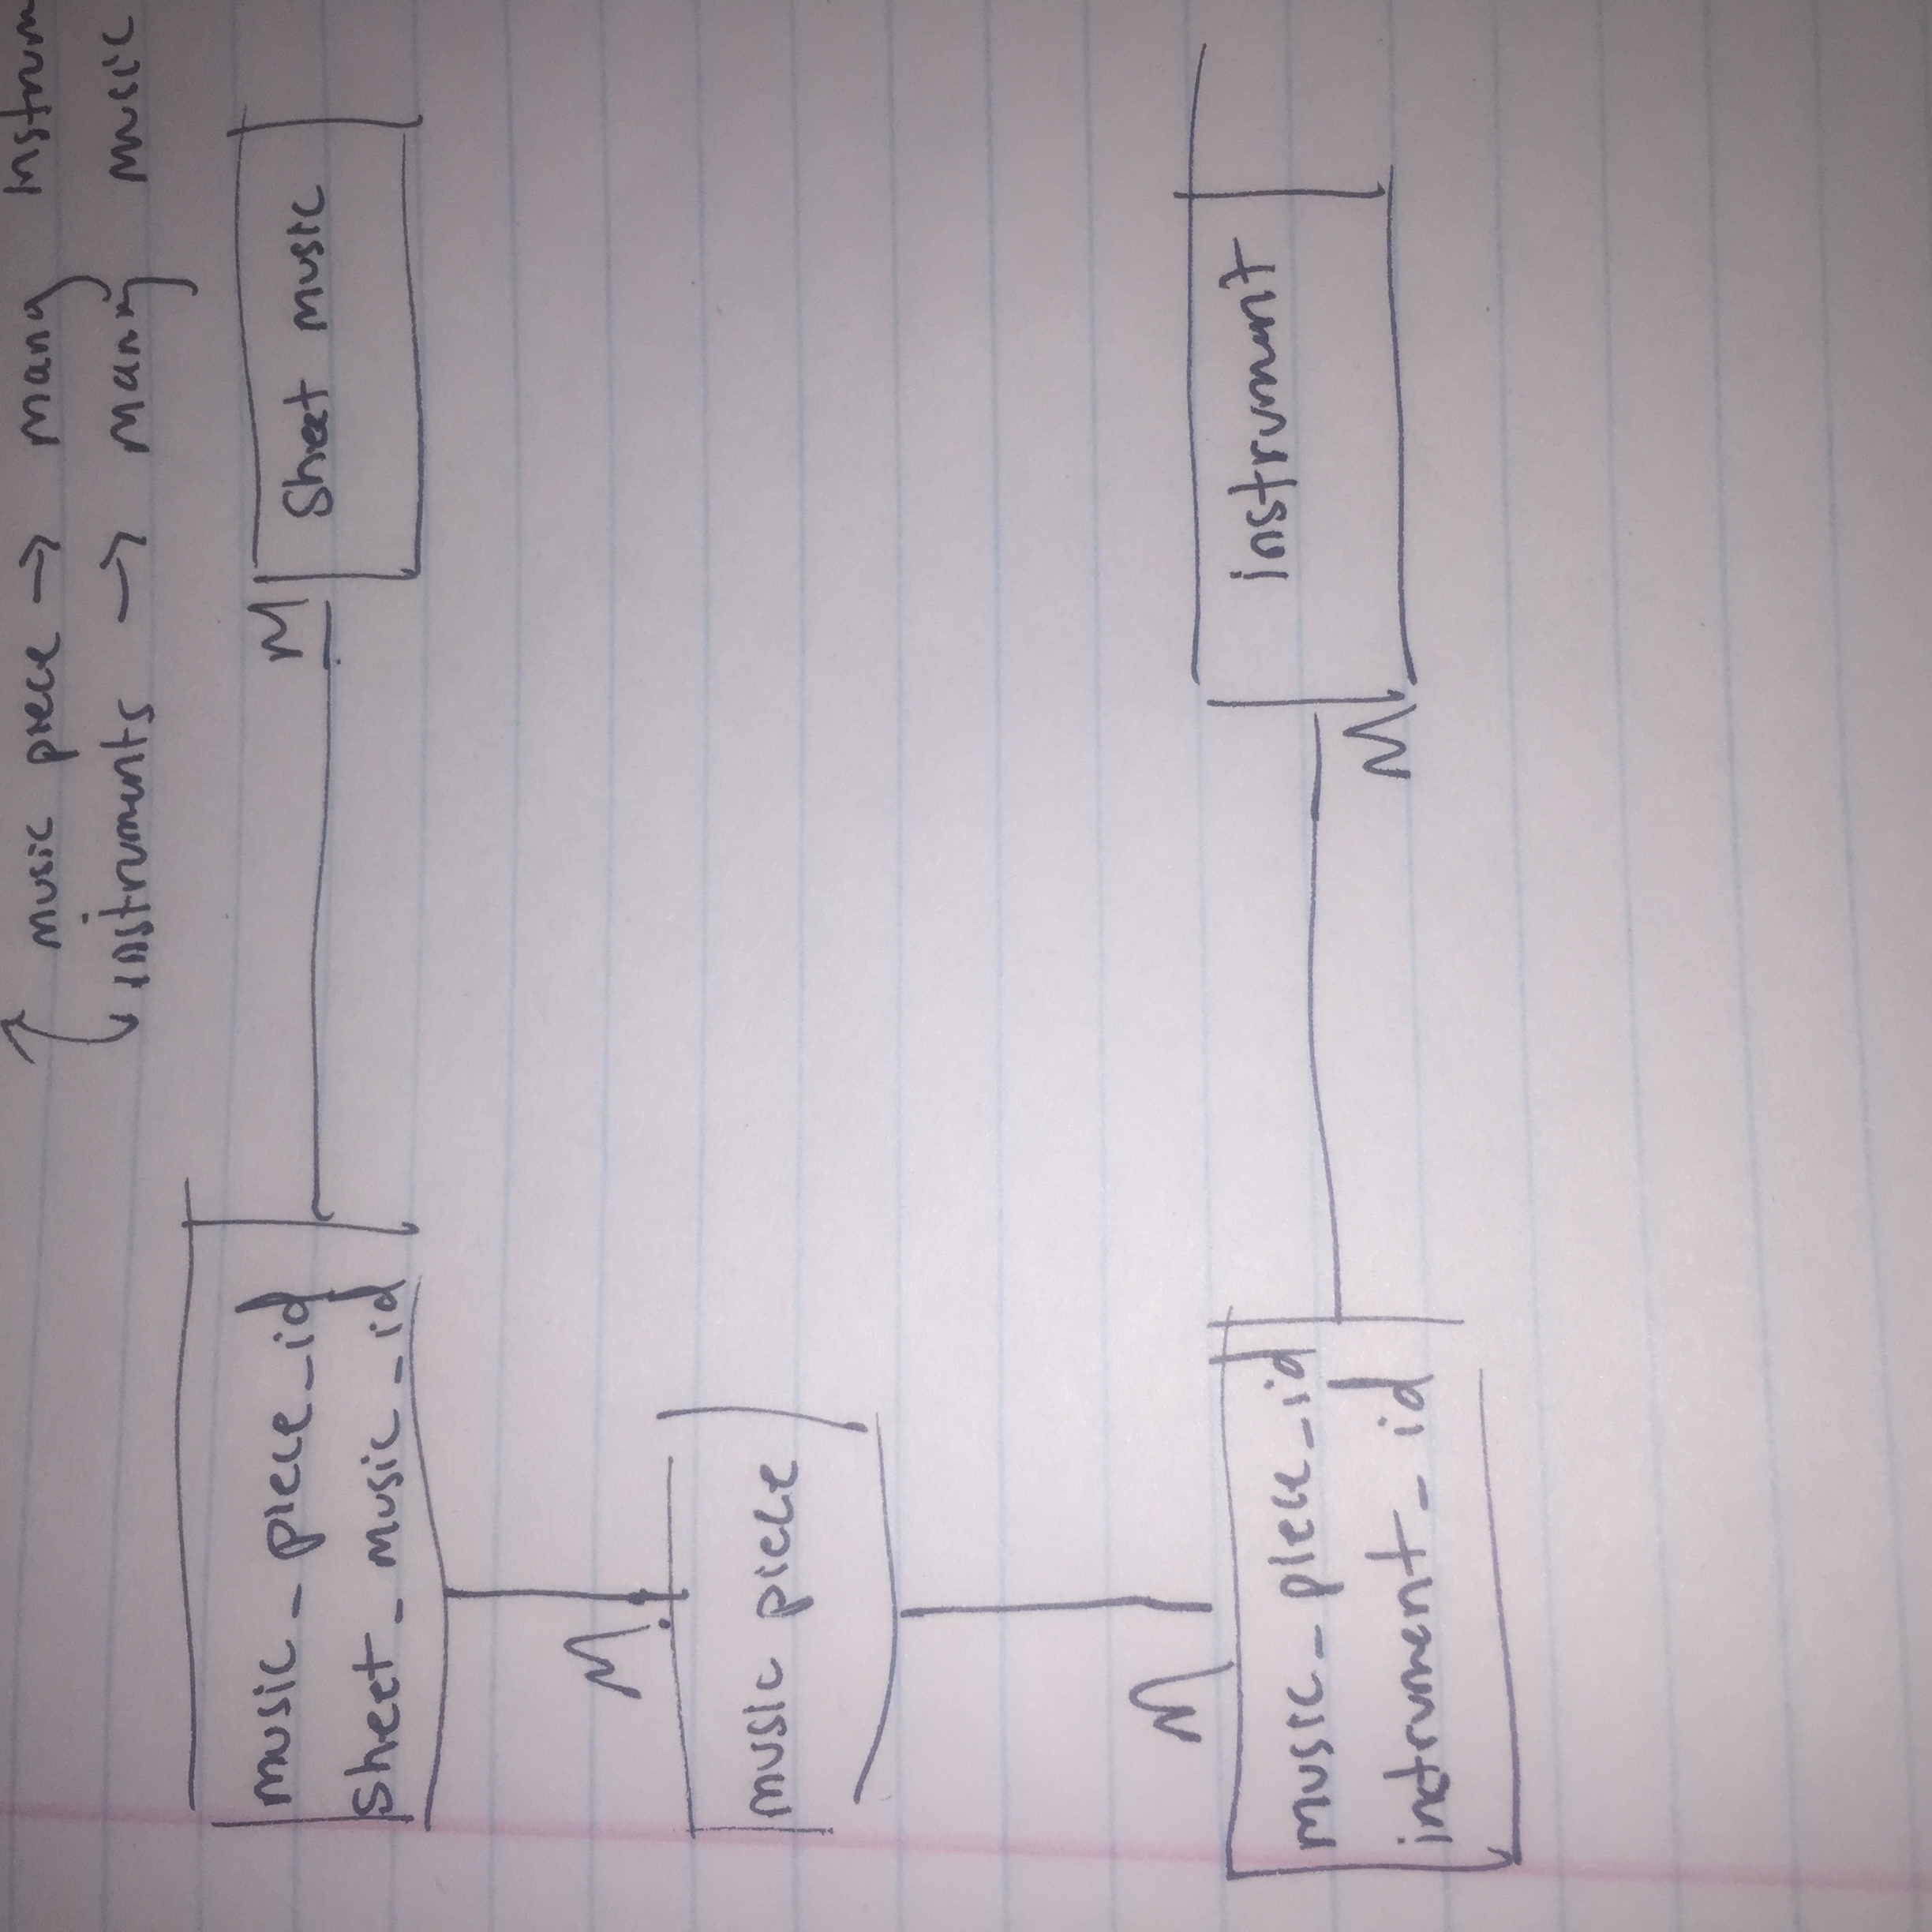 music piece → many instrum
instruments → many music
music_piece_id
sheet_music_id
M
Sheet music
M
music piece
M
music_piece_id
instrument_id
M
instrument